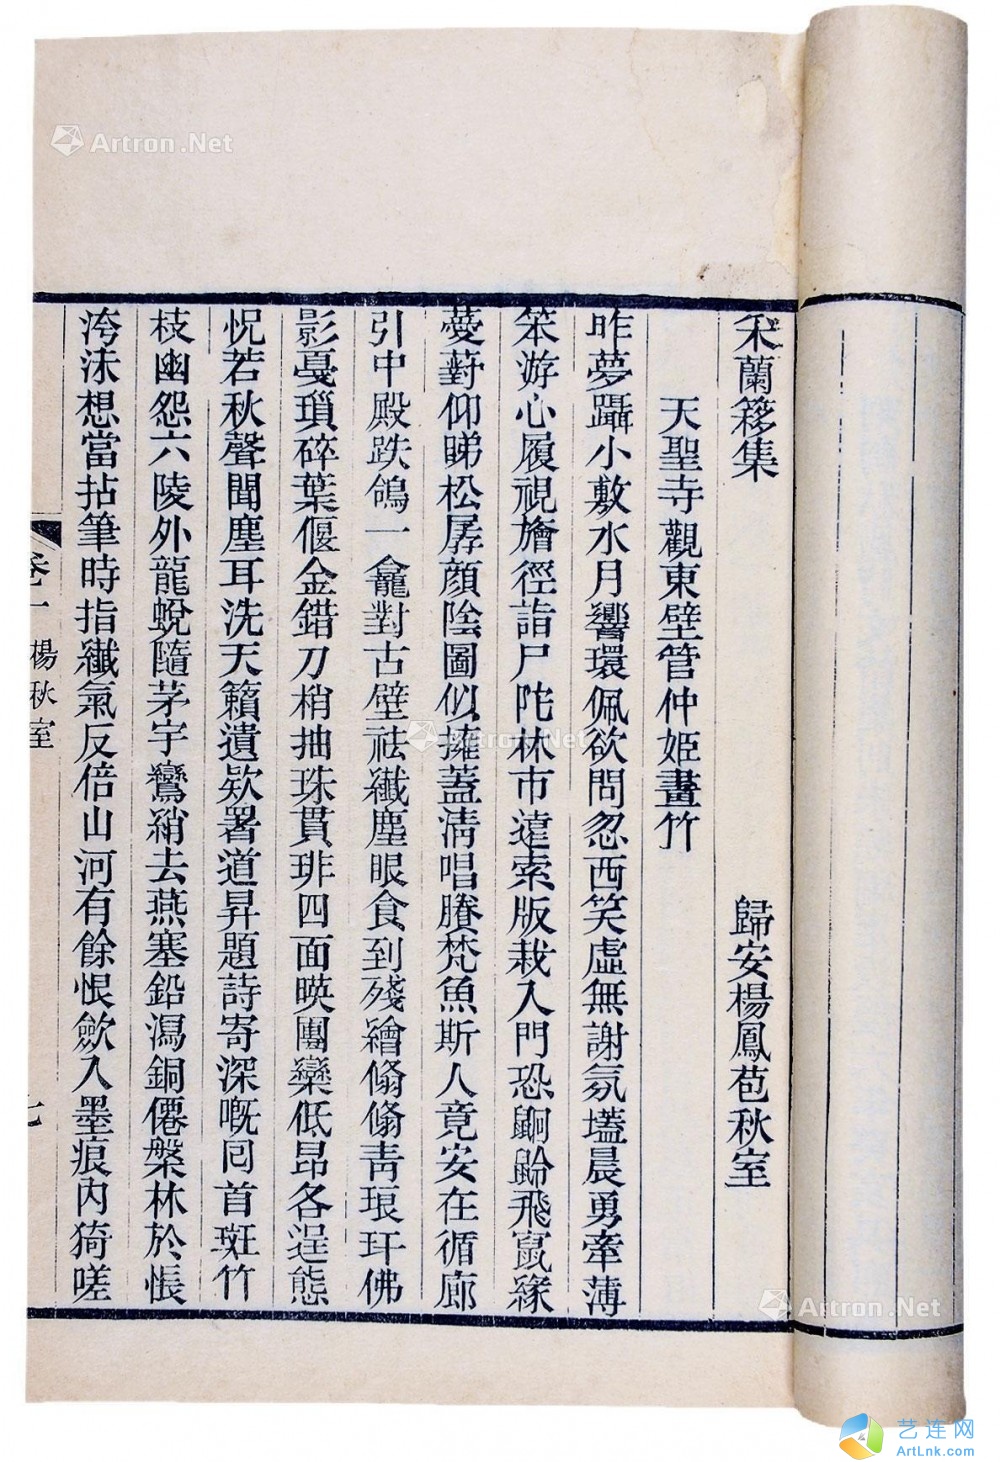 采蘭簃集
歸安楊鳳苞秋室
天聖寺觀東壁管仲姬畫竹
昨夢躡小敷水月響環佩欲問忽西笑虛無謝氛壒晨勇牽薄
笨游心履視旝徑詣尸陀林市遠索版栽入門恐鼩鼢飛竄緣
薆薱仰睇松孱顏陰圖似擁蓋淸唱賸梵魚斯人竟安在循廊
引中殿跌鴿一龕對古壁祛纖塵眼食到殘繪翛翛靑琅玕佛
影戞瑣碎葉偃金錯刀梢抽珠貫琲四面暎團欒低昂各逞態
怳若秋聲聞塵耳洗天籟遺欵署道昇題詩寄深嘅囘首斑竹
枝幽怨六陵外龍蛻隨茅宇鸞綃去燕塞鉛瀉銅僊槃林於悵
洿沬想當拈筆時指纖氣反倍山河有餘恨歛入墨痕內猗嗟
卷一 楊秋室
七
Artron.Net
Artron.Net
Artron.Net
艺连网
ArtLnk.com